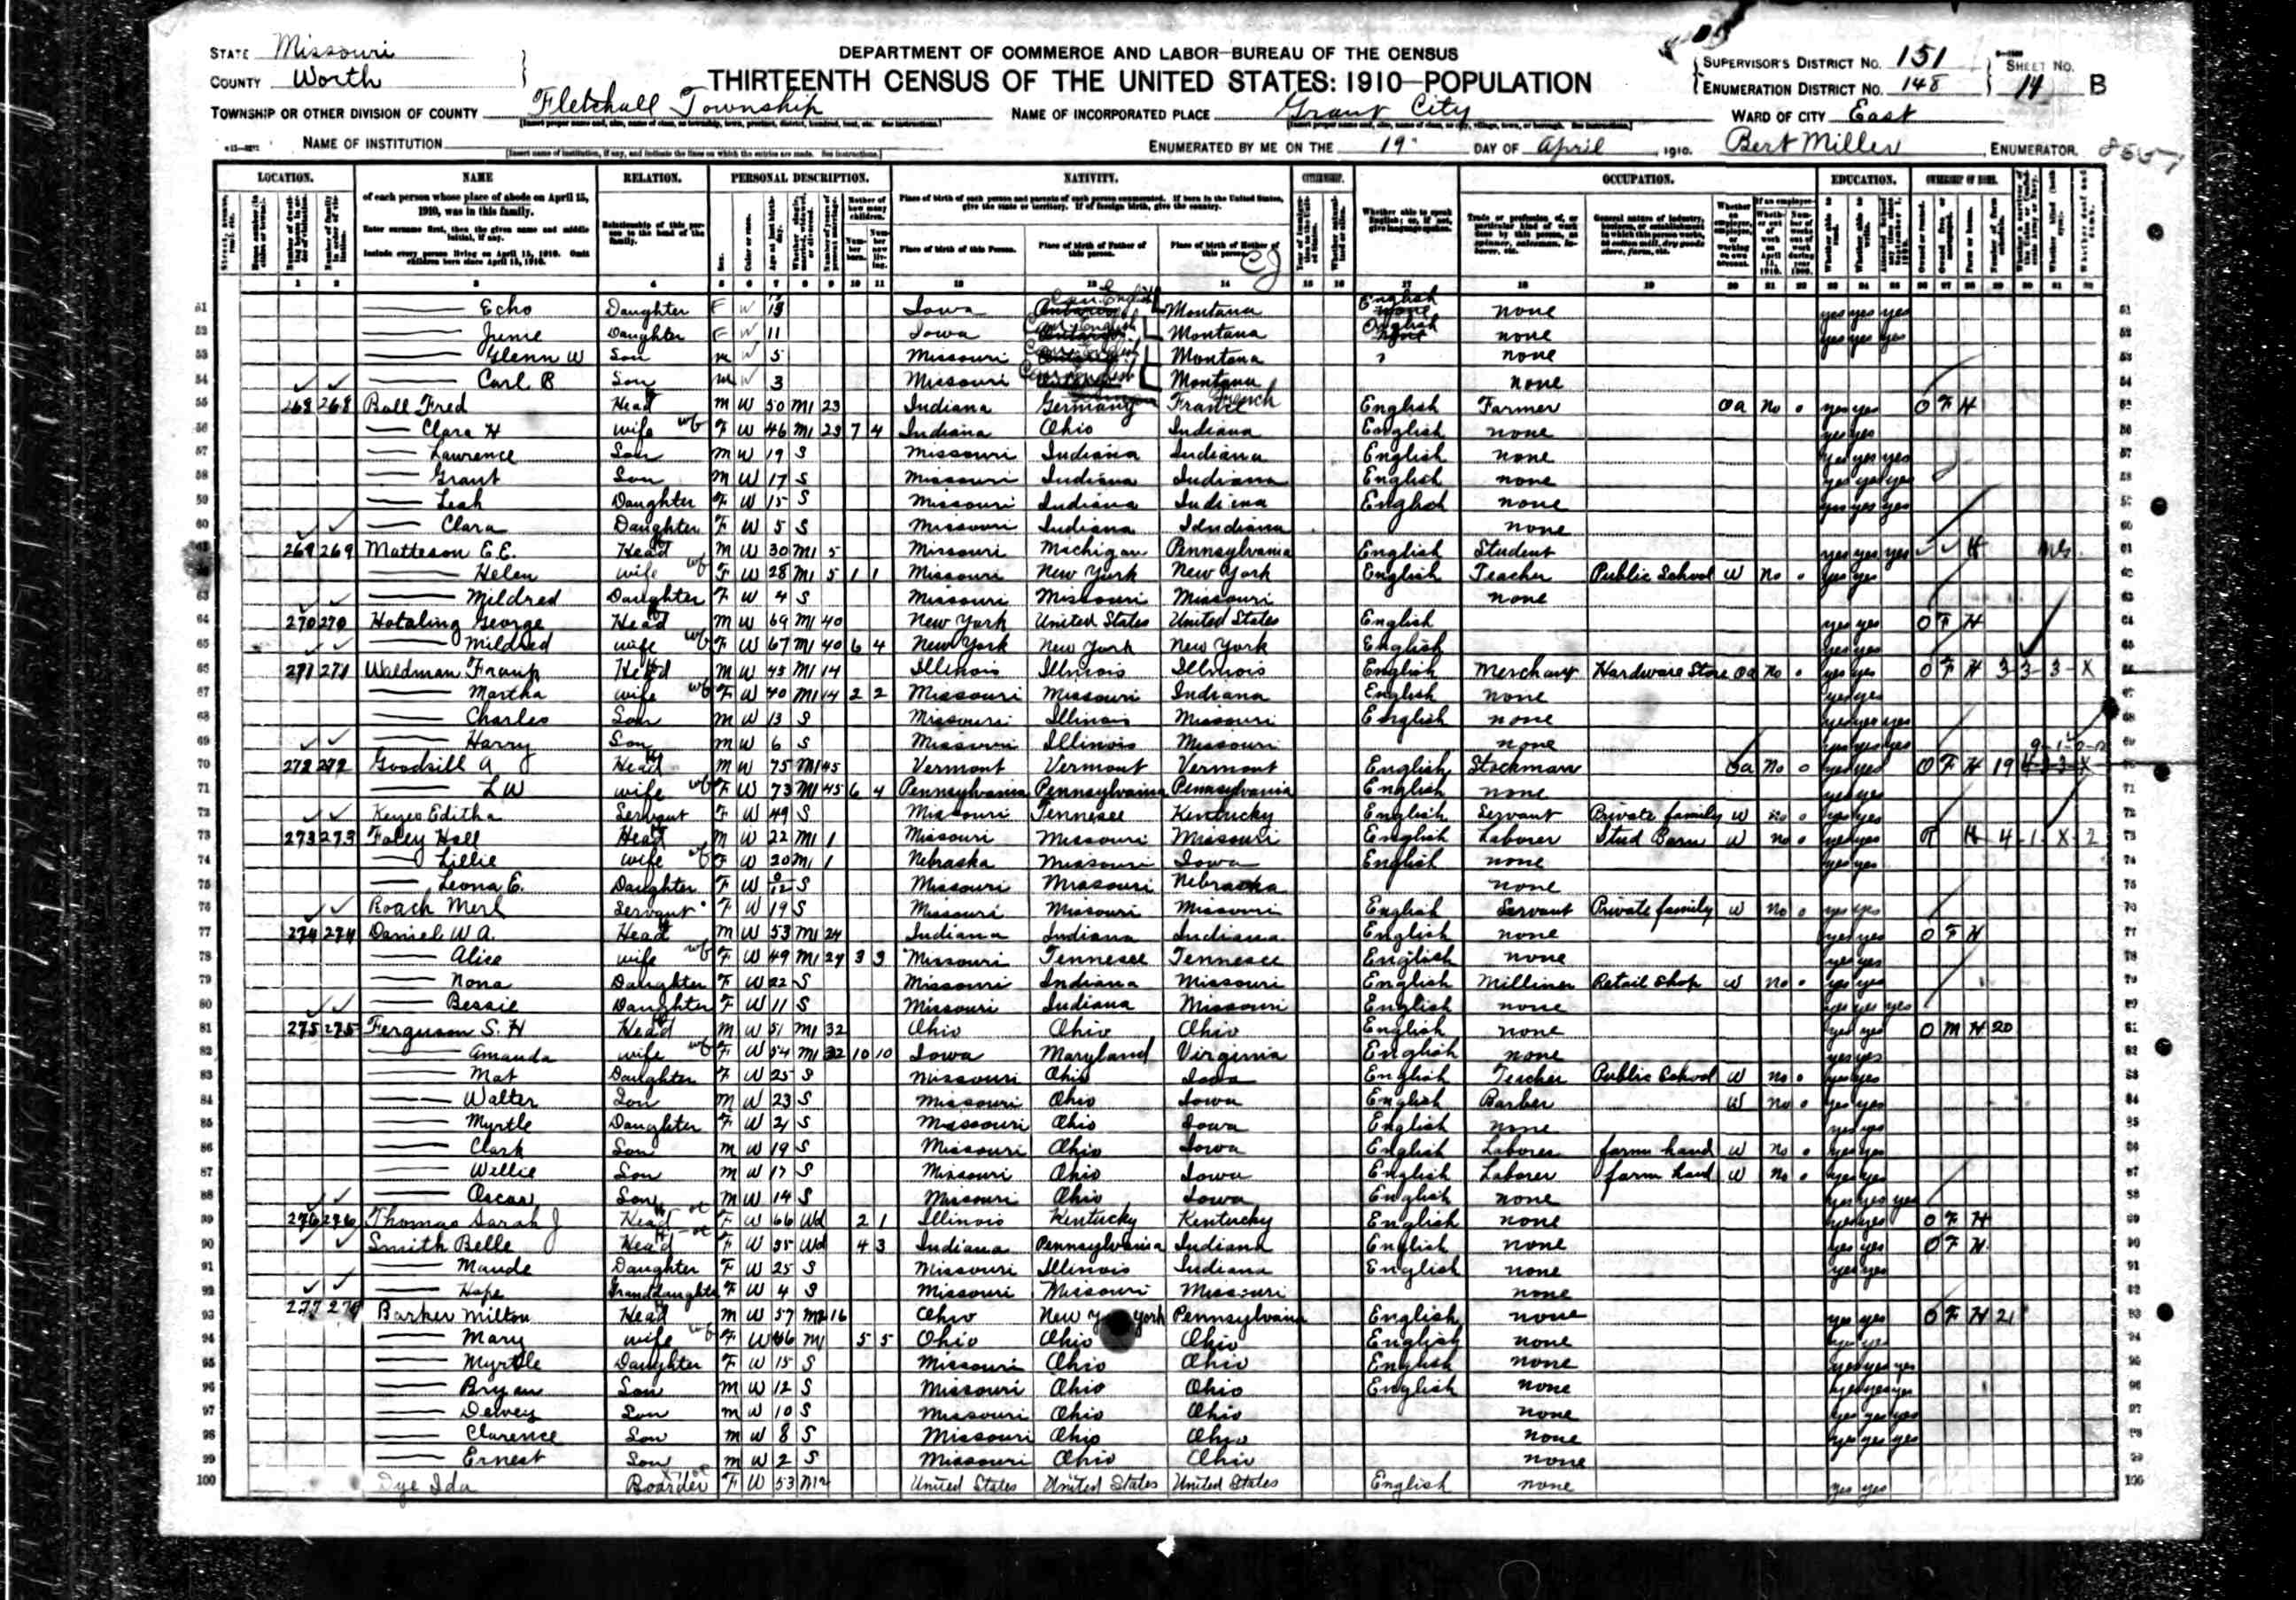 DEPARTMENT OF COMMERCE AND LABOR—BUREAU OF THE CENSUS
THIRTEENTH CENSUS OF THE UNITED STATES: 1910—POPULATION
STATE Missouri
COUNTY Worth
TOWNSHIP OR OTHER DIVISION OF COUNTY Fletchall Township
NAME OF INCORPORATED PLACE Grant City
NAME OF INSTITUTION
ENUMERATED BY ME ON THE 19 DAY OF April, 1910.
SUPERVISOR'S DISTRICT No. 151
ENUMERATION DISTRICT No. 148
SHEET No. 14 B
WARD OF CITY East
Bert Miller, ENUMERATOR.
LOCATION. NAME RELATION. PERSONAL DESCRIPTION. NATIVITY. CITIZENSHIP. OCCUPATION. EDUCATION. OWNERSHIP OF HOME.
of each person whose place of abode on April 15, 1910, was in this family.
Enter surname first, then the given name and middle initial, if any.
Include every person living on April 15, 1910. Omit children born since April 15, 1910.
Relationship of this person to the head of the family.
Place of birth of each person and parents of each person enumerated. If born in the United States, give the state or territory. If of foreign birth, give the country.
Place of birth of this Person. Place of birth of Father of this person. Place of birth of Mother of this person.
51 Echo Daughter F W Iowa Montana English none yes yes yes
52 June Daughter F W 11 Iowa Montana English none yes yes yes
53 Glenn W Son m W 5 Missouri Montana none
54 Carl B Son m W 3 Missouri Montana none
55 268 268 Ball Fred Head m W 50 M1 23 Indiana Germany France English Farmer Oa No 0 yes yes O F H
56 Clara H wife F W 46 M1 23 7 4 Indiana Ohio Indiana English none yes yes
57 Lawrence Son m W 19 S Missouri Indiana Indiana English none yes yes yes
58 Grant Son m W 17 S Missouri Indiana Indiana English none yes yes yes
59 Leah Daughter F W 15 S Missouri Indiana Indiana English none yes yes yes
60 Clara Daughter F W 5 S Missouri Indiana Idndiana none
61 269 269 Matteson E.E. Head m W 30 M1 5 Missouri Michigan Pennsylvania English Student yes yes yes H
62 Helen wife F W 28 M1 5 1 1 Missouri New York New York English Teacher Public School W No 0 yes yes
63 Mildred Daughter F W 4 S Missouri Missouri Missouri none
64 270 270 Hotaling George Head m W 69 M1 40 New York United States United States English yes yes O F H
65 Mildred wife F W 67 M1 40 6 4 New York New York New York English yes yes
66 271 271 Waldman Frank Head m W 45 M1 14 Illinois Illinois Illinois English Merchant Hardware Store Oa No 0 yes yes O F H 3 3 - 3 - X
67 Martha wife F W 40 M1 14 2 2 Missouri Missouri Indiana English none yes yes
68 Charles Son m W 13 S Missouri Illinois Missouri English none yes yes yes
69 Harry Son m W 6 S Missouri Illinois Missouri none yes yes yes
70 272 272 Goodsill A Head m W 75 M1 45 Vermont Vermont Vermont English Stockman Oa No 0 yes yes O F H 19
71 L W wife F W 73 M1 45 6 4 Pennsylvania Pennsylvania Pennsylvania English none yes yes
72 Keyes Editha Servant F W 49 S Missouri Tennesee Kentucky English Servant Private family W no 0 yes yes
73 273 273 Foley Hall Head m W 22 M1 1 Missouri Missouri Missouri English Laborer Stud Barn W no 0 yes yes R H 4 - 1 - X - 2
74 Lillie wife F W 20 M1 1 Nebraska Missouri Iowa English none yes yes
75 Leona E. Daughter F W S Missouri Missouri Nebraska none
76 Roach Merl Servant F W 19 S Missouri Missouri Missouri English Servant Private family W No 0 yes yes
77 274 274 Daniel W A. Head m W 53 M1 24 Indiana Indiana Indiana English none yes yes O F H
78 Alice wife F W 49 M1 24 3 3 Missouri Tennesee Tennesee English none yes yes
79 Nona Daughter F W 22 S Missouri Indiana Missouri English Milliner Retail Shop W No 0 yes yes
80 Bessie Daughter F W 11 S Missouri Indiana Missouri English none yes yes yes
81 275 275 Ferguson S. H Head m W 51 M1 32 Ohio Ohio Ohio English none yes yes O M H 20
82 Amanda wife F W 54 M1 32 10 10 Iowa Maryland Virginia English none yes yes
83 Mat Daughter F W 25 S Missouri Ohio Iowa English Teacher Public School W no 0 yes yes
84 Walter Son m W 23 S Missouri Ohio Iowa English Barber W no 0 yes yes
85 Myrtle Daughter F W 21 S Missouri Ohio Iowa English none yes yes
86 Clark Son m W 19 S Missouri Ohio Iowa English Laborer farm hand W No 0 yes yes
87 Willie Son m W 17 S Missouri Ohio Iowa English Laborer farm hand W No 0 yes yes
88 Oscar Son m W 14 S Missouri Ohio Iowa English none yes yes yes
89 276 276 Thomas Sarah J Head F W 66 Wd 2 1 Illinois Kentucky Kentucky English none yes yes O F H
90 Smith Belle Head F W 55 Wd 4 3 Indiana Pennsylvania Indiana English none yes yes O F H
91 Maude Daughter F W 25 S Missouri Illinois Indiana English none yes yes
92 Hope Granddaughter F W 4 S Missouri Missouri Missouri none
93 277 Barker Milton Head m W 57 M2 16 Ohio New York Pennsylvania English none yes yes O F H 21
94 Mary wife F W 46 M1 5 5 Ohio Ohio Ohio English none yes yes
95 Myrtle Daughter F W 15 S Missouri Ohio Ohio English none yes yes yes
96 Bryan Son m W 12 S Missouri Ohio Ohio English none yes yes yes
97 Dewey Son m W 10 S Missouri Ohio Ohio none yes yes yes
98 Clarence Son m W 8 S Missouri Ohio Ohio none yes yes yes
99 Ernest Son m W 2 S Missouri Ohio Ohio none
100 Dye Ida Boarder F W 53 United States United States United States English none yes yes